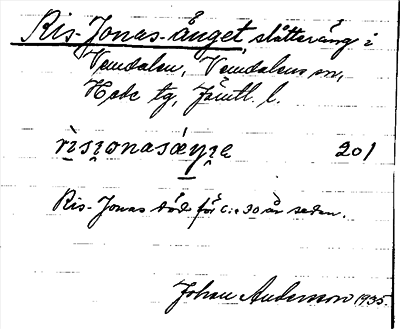 Ris-Jonas-änget, slåtteräng i
Vemdalen, Vemdalens sn,
Hede tg, Jämtl. l.
rìsjonasǽŋɟa 201
Ris-Jonas död för c:a 30 år sedan.
Johan Anderson 1935.